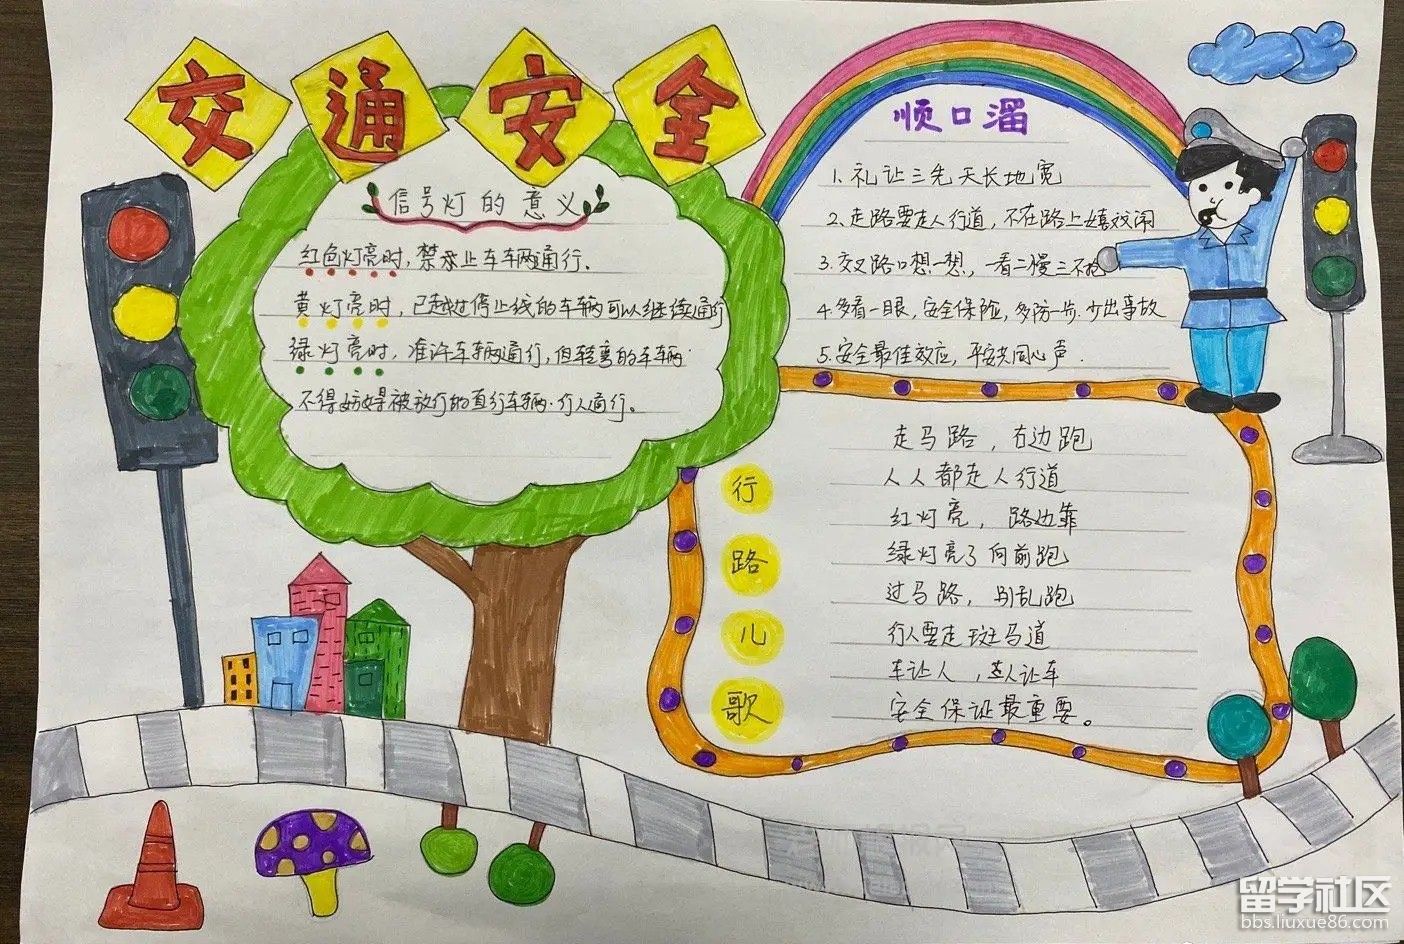 交通安全
信号灯的意义
红色灯亮时，禁示止车车两通行．
黄灯亮时，已越过停止线的车辆可以继续通行
绿灯亮时，准许车辆通行，但转弯的车辆
不得妨碍被放行的直行车辆．行人通行。
顺口溜
1.礼让三先天长地宽
2.走路要走人行道，不在路上嬉戏闹
3.交叉路口想一想，一看二慢三不抢
4.多看一眼，安全保险，多防一步．少出事故
5.安全最佳效应，平安共同心声．
行路儿歌
走马路，右边跑
人人都走人行道
红灯亮，路边靠
绿灯亮了向前跑
过马路，别乱跑
行人要走斑马道
车让人，人让车
安全保证最重要。
留学社区
bbs.liuxue86.com